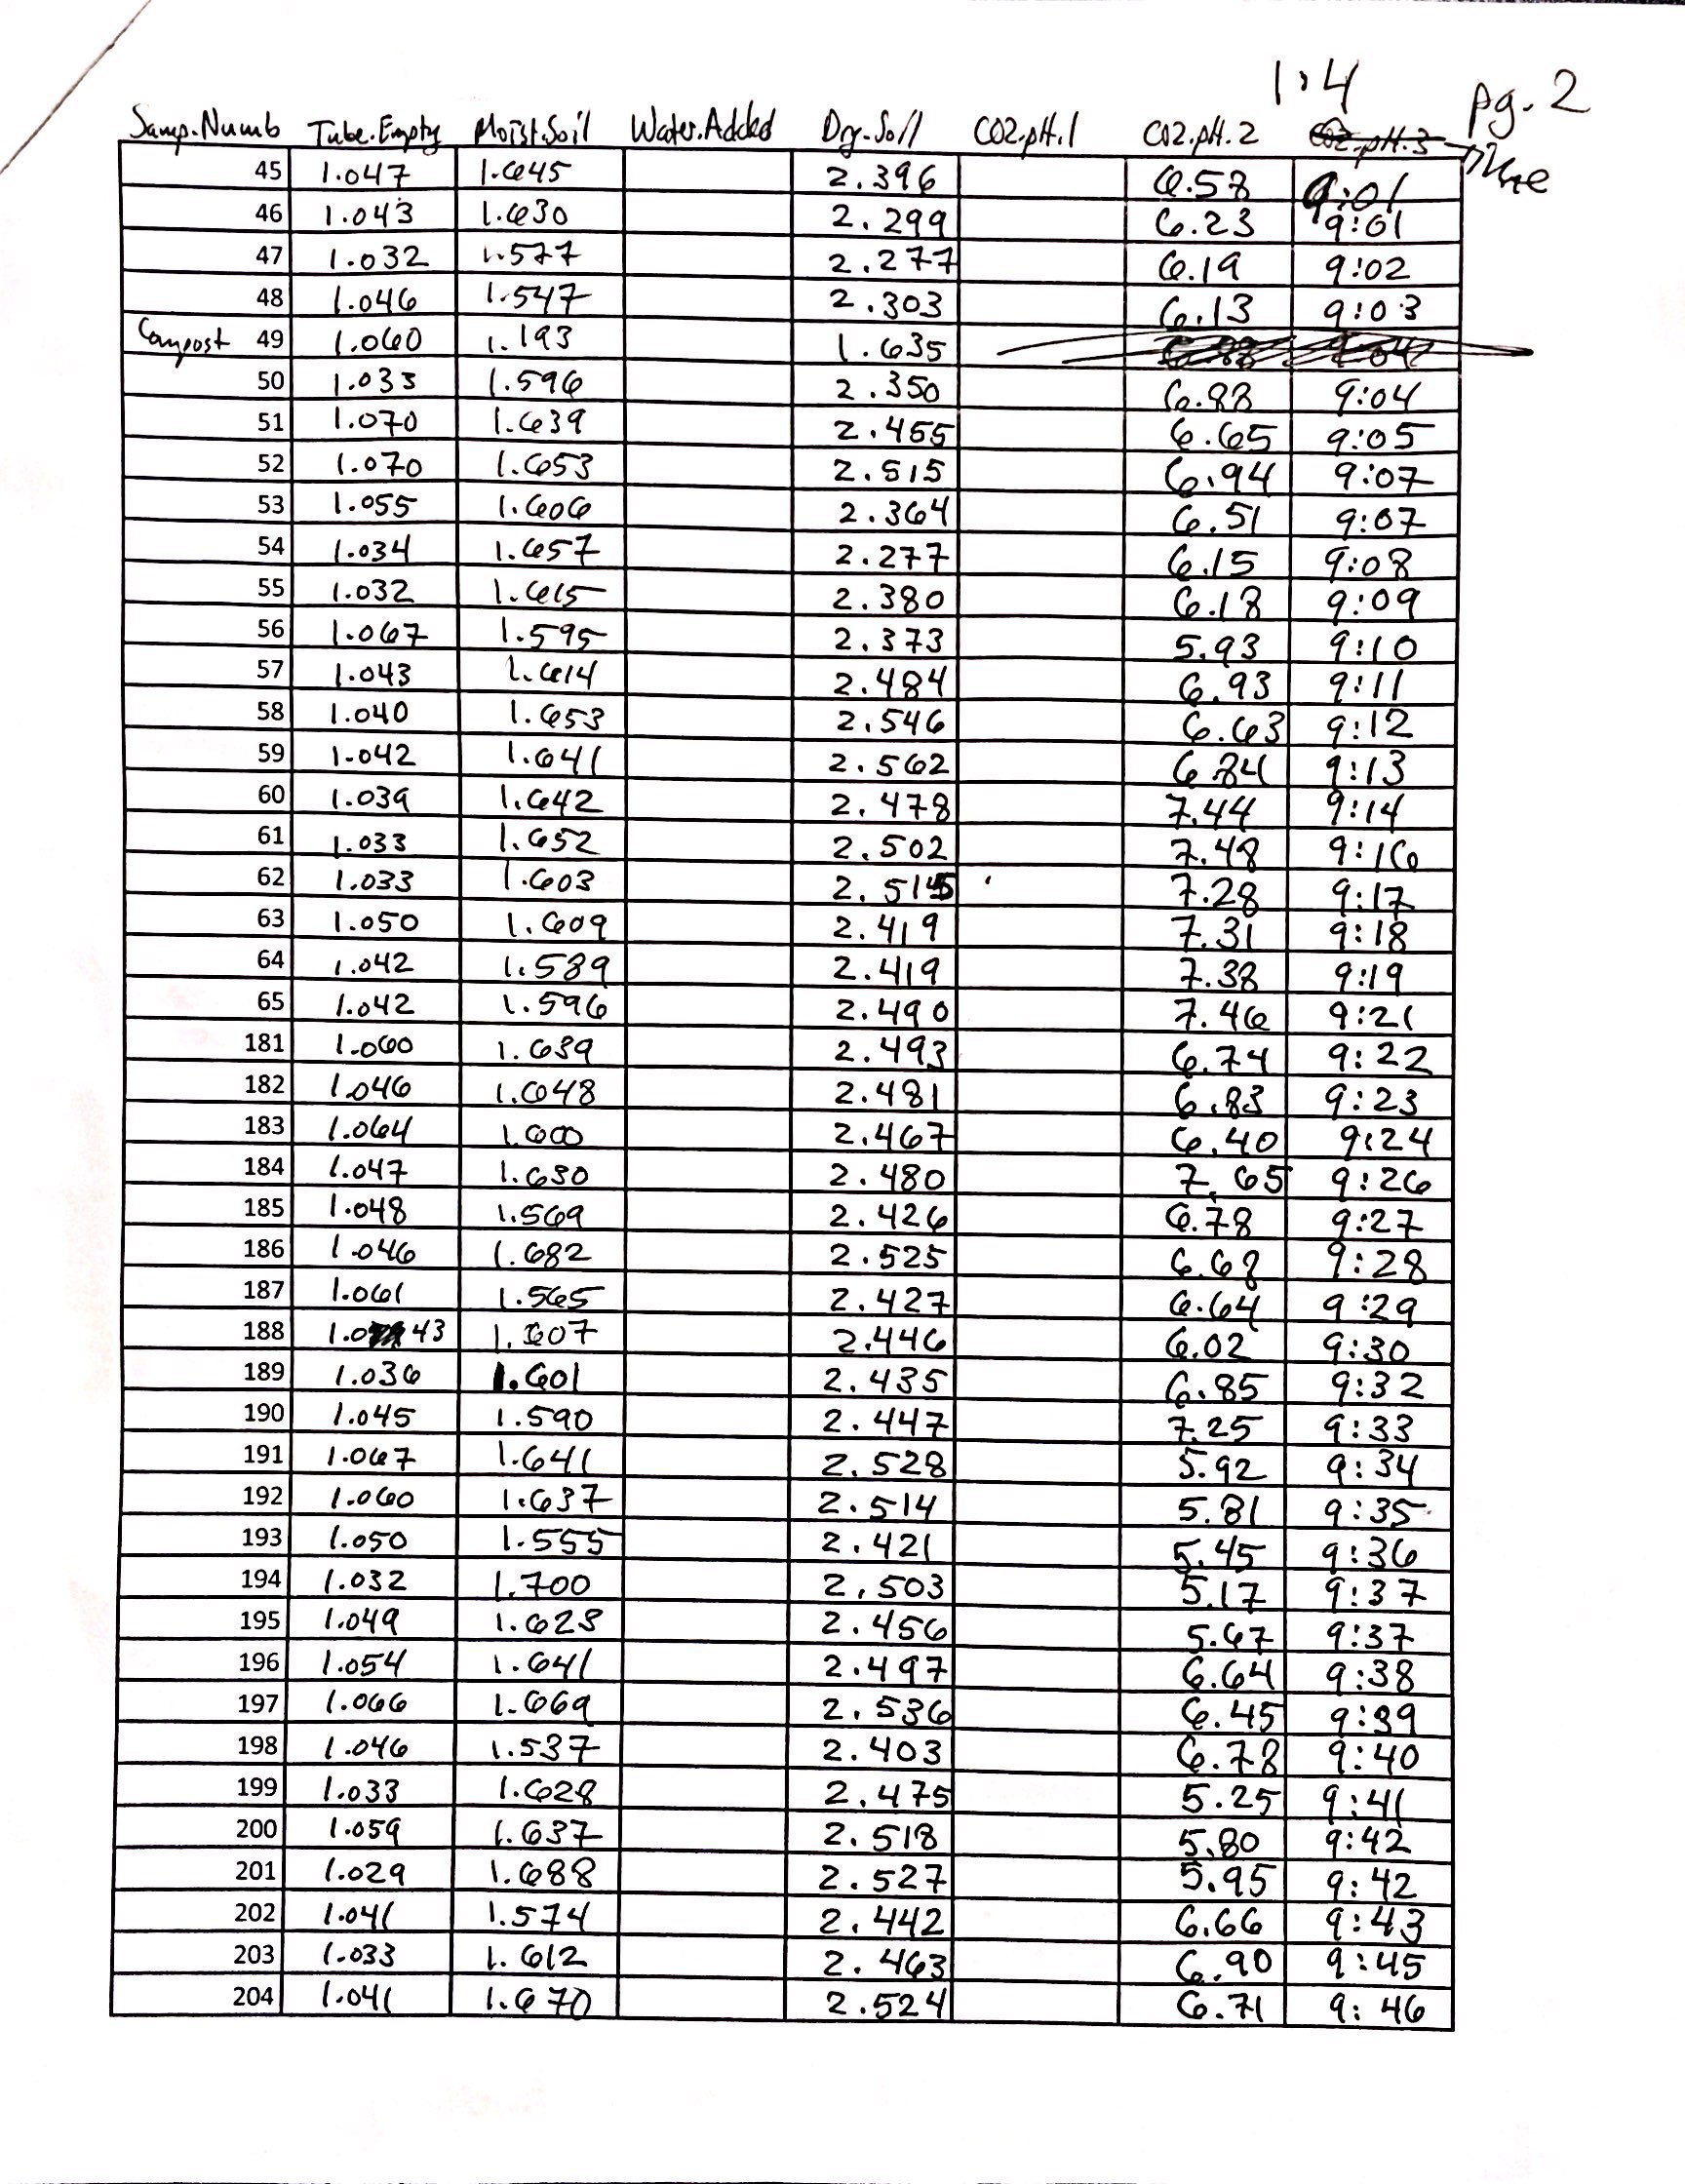 1:4 pg. 2
Samp.Numb Tube.Empty Moist.Soil Water.Added Dry.Soil CO2.pH.1 CO2.pH.2 CO2.pH.3 → Time
45 1.047 1.645 2.396 6.58 9:01
46 1.043 1.630 2.299 6.23 9:01
47 1.032 1.577 2.277 6.19 9:02
48 1.046 1.547 2.303 6.13 9:03
Compost 49 1.060 1.193 1.635
50 1.033 1.596 2.350 6.88 9:04
51 1.070 1.639 2.455 6.65 9:05
52 1.070 1.653 2.515 6.94 9:07
53 1.055 1.606 2.364 6.51 9:07
54 1.034 1.657 2.277 6.15 9:08
55 1.032 1.615 2.380 6.18 9:09
56 1.067 1.595 2.373 5.93 9:10
57 1.043 1.614 2.484 6.93 9:11
58 1.040 1.653 2.546 6.63 9:12
59 1.042 1.641 2.562 6.84 9:13
60 1.039 1.642 2.478 7.44 9:14
61 1.033 1.652 2.502 7.48 9:16
62 1.033 1.603 2.515 7.28 9:17
63 1.050 1.609 2.419 7.31 9:18
64 1.042 1.589 2.419 7.38 9:19
65 1.042 1.596 2.490 7.46 9:21
181 1.060 1.639 2.493 6.74 9:22
182 1.046 1.648 2.481 6.83 9:23
183 1.064 1.600 2.467 6.40 9:24
184 1.047 1.630 2.480 7.65 9:26
185 1.048 1.569 2.426 6.78 9:27
186 1.046 1.682 2.525 6.68 9:28
187 1.061 1.565 2.427 6.64 9:29
188 1.043 1.607 2.446 6.02 9:30
189 1.036 1.601 2.435 6.85 9:32
190 1.045 1.590 2.447 7.25 9:33
191 1.067 1.641 2.528 5.92 9:34
192 1.060 1.637 2.514 5.81 9:35
193 1.050 1.555 2.421 5.45 9:36
194 1.032 1.700 2.503 5.17 9:37
195 1.049 1.623 2.456 5.67 9:37
196 1.054 1.641 2.497 6.64 9:38
197 1.066 1.669 2.536 6.45 9:39
198 1.046 1.537 2.403 6.78 9:40
199 1.033 1.628 2.475 5.25 9:41
200 1.059 1.637 2.518 5.80 9:42
201 1.029 1.688 2.527 5.95 9:42
202 1.041 1.574 2.442 6.66 9:43
203 1.033 1.612 2.463 6.90 9:45
204 1.041 1.670 2.524 6.71 9:46